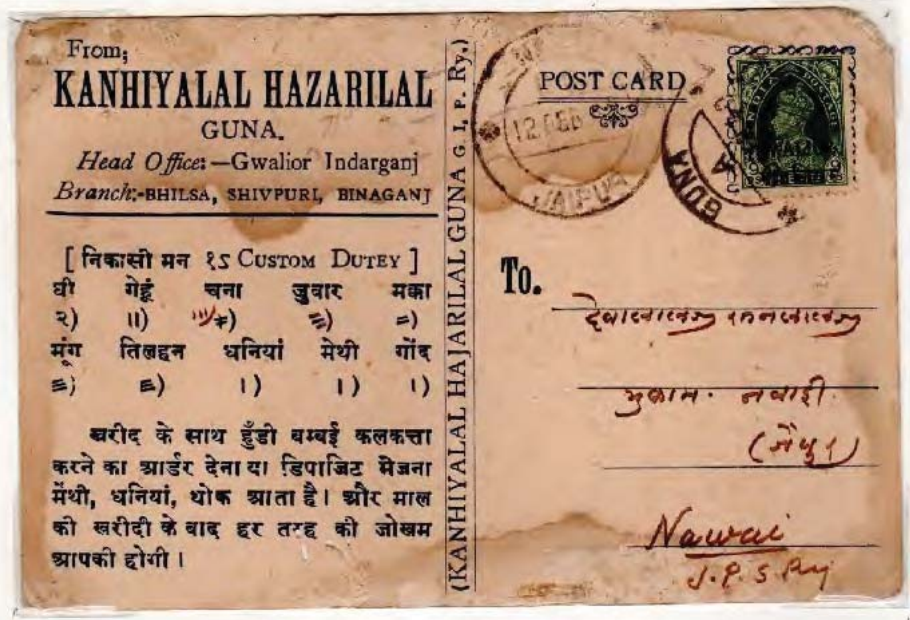 From;
KANHIYALAL HAZARILAL
GUNA.
Head Office:—Gwalior Indarganj
Branch:-BHILSA, SHIVPURI, BINAGANJ
[ निकासी मन १ऽ CUSTOM DUTEY ]
घी गेहूं चना जुवार मका
२) ॥) ≡) =)
मूंग तिलहन धनियां मेथी गोंद
≡) ≡) ।) ।) ।)
खरीद के साथ हुँडी बम्बई कलकत्ता
करने का आर्डर देना या डिपाजिट भेजना
मेंथी, धनियां, थोक आता है। और माल
की खरीदी के बाद हर तरह की जोखम
आपकी होगी।
(KANHIYALAL HAJARILAL GUNA G. I. P. Ry.)
POST CARD
12 DEC
JAIPUR
GUNA
INDIA POSTAGE
GWALIOR
To.
देवालालजी रतनलालजी
मुकाम. नवाई
(जैपुर)
Nawai
J. P. S Ry